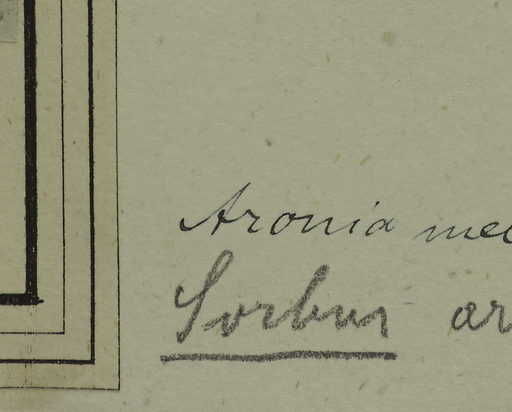 Aronia mec
Sorbus ar